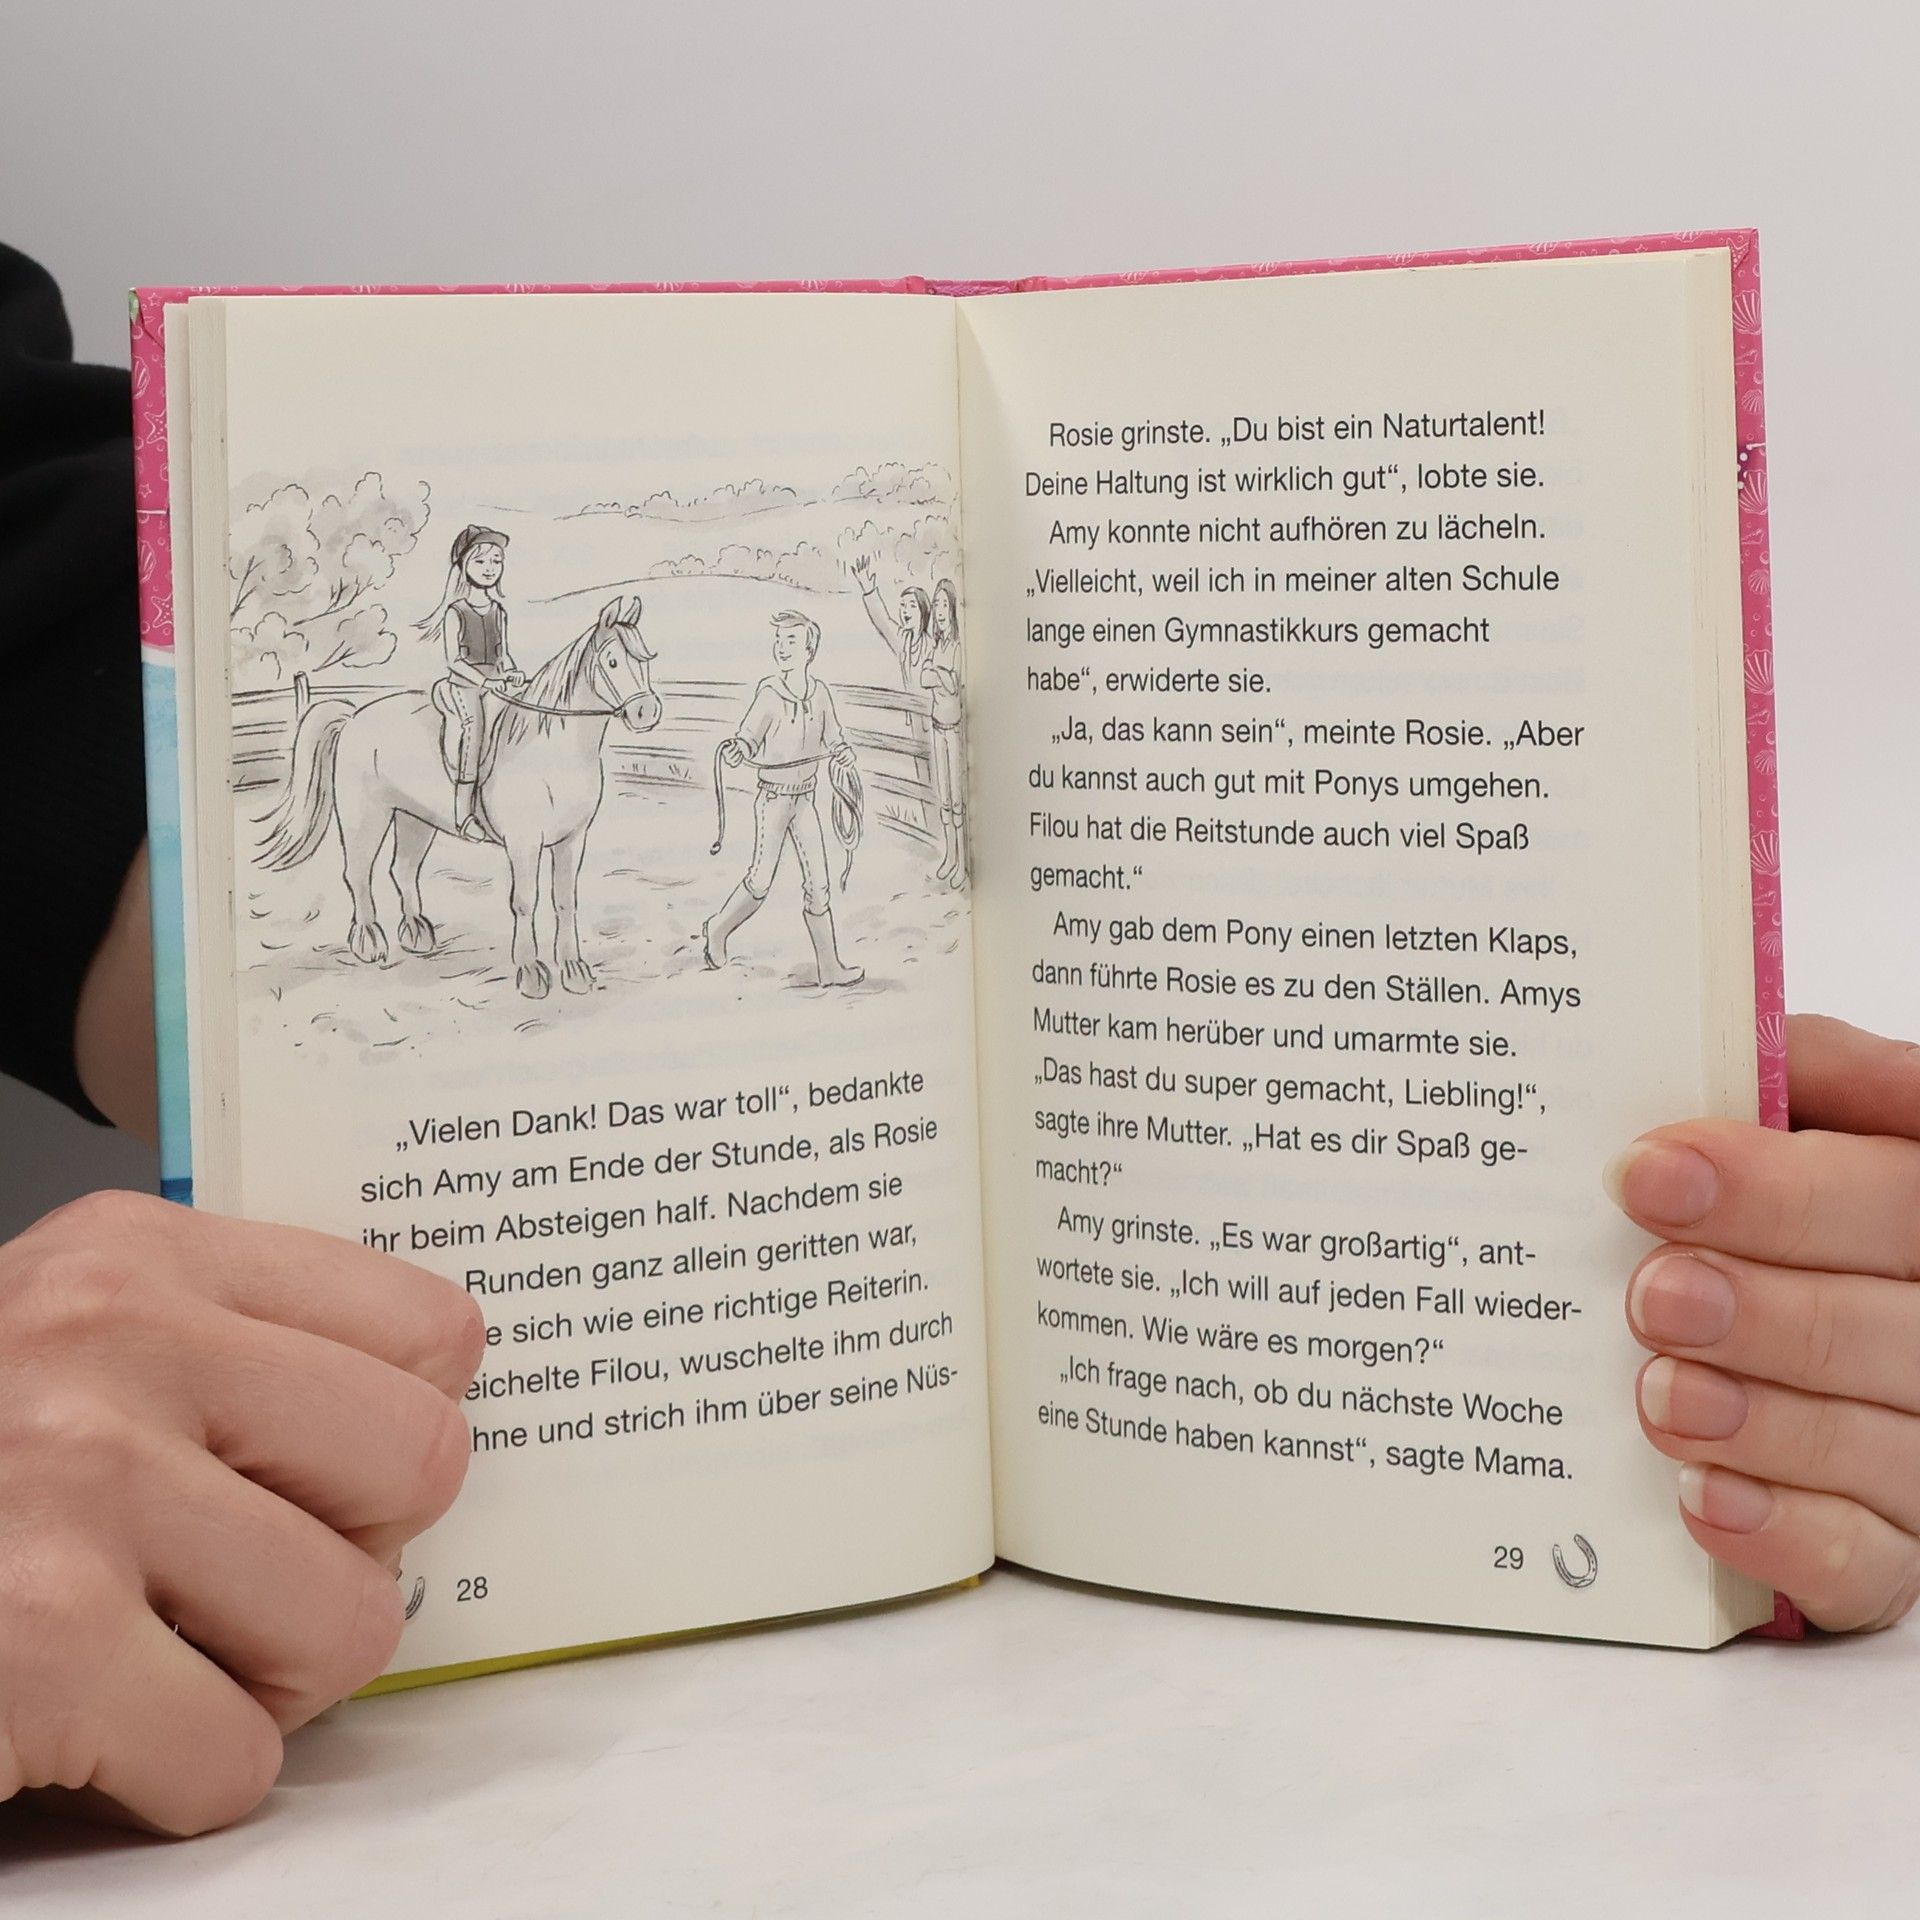 „Vielen Dank! Das war toll“, bedankte
sich Amy am Ende der Stunde, als Rosie
ihr beim Absteigen half. Nachdem sie
Runden ganz allein geritten war,
sich wie eine richtige Reiterin.
Filou, wuschelte ihm durch
und strich ihm über seine Nüs-
28
Rosie grinste. „Du bist ein Naturtalent!
Deine Haltung ist wirklich gut“, lobte sie.
Amy konnte nicht aufhören zu lächeln.
„Vielleicht, weil ich in meiner alten Schule
lange einen Gymnastikkurs gemacht
habe“, erwiderte sie.
„Ja, das kann sein“, meinte Rosie. „Aber
du kannst auch gut mit Ponys umgehen.
Filou hat die Reitstunde auch viel Spaß
gemacht.“
Amy gab dem Pony einen letzten Klaps,
dann führte Rosie es zu den Ställen. Amys
Mutter kam herüber und umarmte sie.
„Das hast du super gemacht, Liebling!“,
sagte ihre Mutter. „Hat es dir Spaß ge-
macht?“
Amy grinste. „Es war großartig“, ant-
wortete sie. „Ich will auf jeden Fall wieder-
kommen. Wie wäre es morgen?“
„Ich frage nach, ob du nächste Woche
eine Stunde haben kannst“, sagte Mama.
29